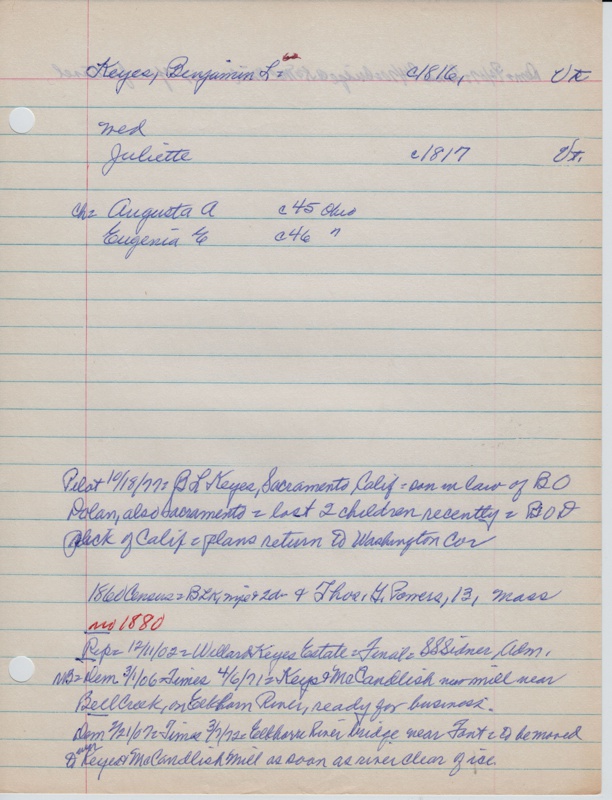 Keyes, Benjamin L = c1816, Vt
wed
Juliette c1817 Vt.
Ch= Augusta A c45 Ohio
Eugenia E c46 "
Pilot 10/18/77= B L Keyes, Sacramento, Calif = son in law of B O
Dolan, also Sacramento = lost 2 children recently = B O D
sick of Calif = plans return to Washington Co=
1860 Census = B L K, wife & 2d- & Thos. G. Powers, 13, Mass
no 1880
Rep= 12/11/02= Willard Keyes Estate = Final = S S Sidner, Adm.
NB= Dem 3/1/06= Times 4/6/71= Keyes & McCandlish new mill near
Bell Creek, on Elkhorn River, ready for business.
Dem 2/21/07= Times 3/7/72= Elkhorn River Bridge near Font = to be moved
to nr Keyes & McCandlish Mill as soon as river clear of ice.